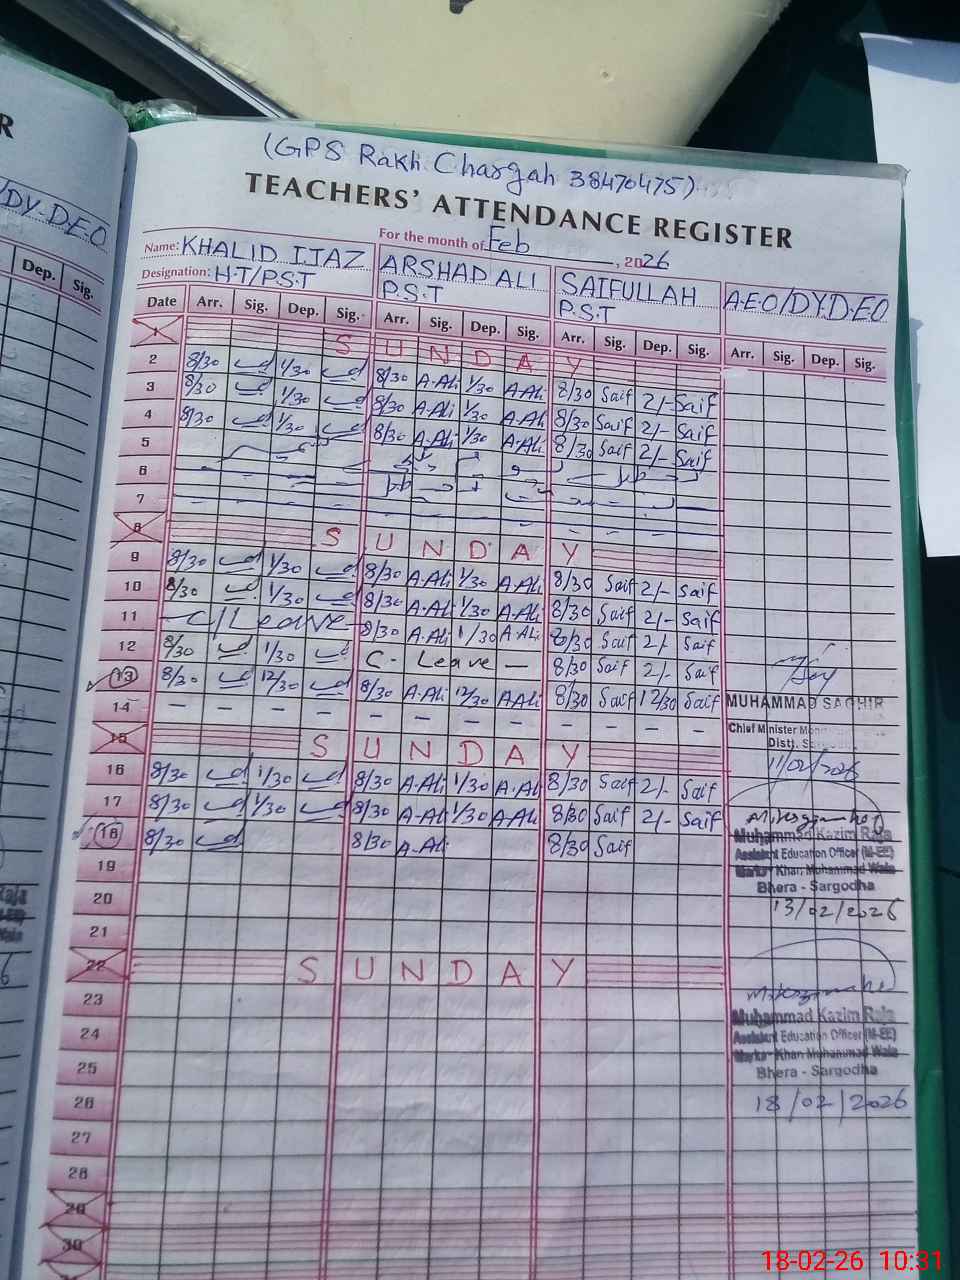 R
(GPS Rakh Chargah 38470475)
TEACHERS' ATTENDANCE REGISTER
/DY.D.E.O
For the month of Feb, 2026
Name: KHALID IJAZ ARSHAD ALI SAIFULLAH A.E.O/DY.D.E.O
Designation: H.T/P.S.T P.S.T P.S.T
Dep. Sig.
Date Arr. Sig. Dep. Sig. Arr. Sig. Dep. Sig. Arr. Sig. Dep. Sig. Arr. Sig. Dep. Sig.
1 SUNDAY
2 8/30 1/30 8/30 A.Ali 1/30 A.Ali 8/30 Saif 2/- Saif
3 8/30 1/30 8/30 A.Ali 1/30 A.Ali 8/30 Saif 2/- Saif
4 8/30 1/30 8/30 A.Ali 1/30 A.Ali 8/30 Saif 2/- Saif
5
6
7
8 SUNDAY
9 8/30 1/30 8/30 A.Ali 1/30 A.Ali 8/30 Saif 2/- Saif
10 8/30 1/30 8/30 A.Ali 1/30 A.Ali 8/30 Saif 2/- Saif
11 - C/Leave - 8/30 A.Ali 1/30 A.Ali 8/30 Saif 2/- Saif
12 8/30 1/30 C- Leave - 8/30 Saif 2/- Saif
13 8/30 12/30 8/30 A.Ali 12/30 A.Ali 8/30 Saif 12/30 Saif
MUHAMMAD SAGHIR
14 - - - - - - - - - - - -
Chief Minister
Distt.
15 SUNDAY
11/02/2026
16 8/30 1/30 8/30 A.Ali 1/30 A.Ali 8/30 Saif 2/- Saif
17 8/30 1/30 8/30 A.Ali 1/30 A.Ali 8/30 Saif 2/- Saif
18 8/30 8/30 A.Ali 8/30 Saif
Muhammad Kazim Raja
Assistant Education Officer (M-EE)
Markaz Khan Muhammad Wala
Bhera - Sargodha
13/02/2026
19
20
21
22 SUNDAY
23
Muhammad Kazim Raja
Assistant Education Officer (M-EE)
Markaz Khan Muhammad Wala
Bhera - Sargodha
24
25
26
18/02/2026
27
28
29
30
18-02-26 10:31